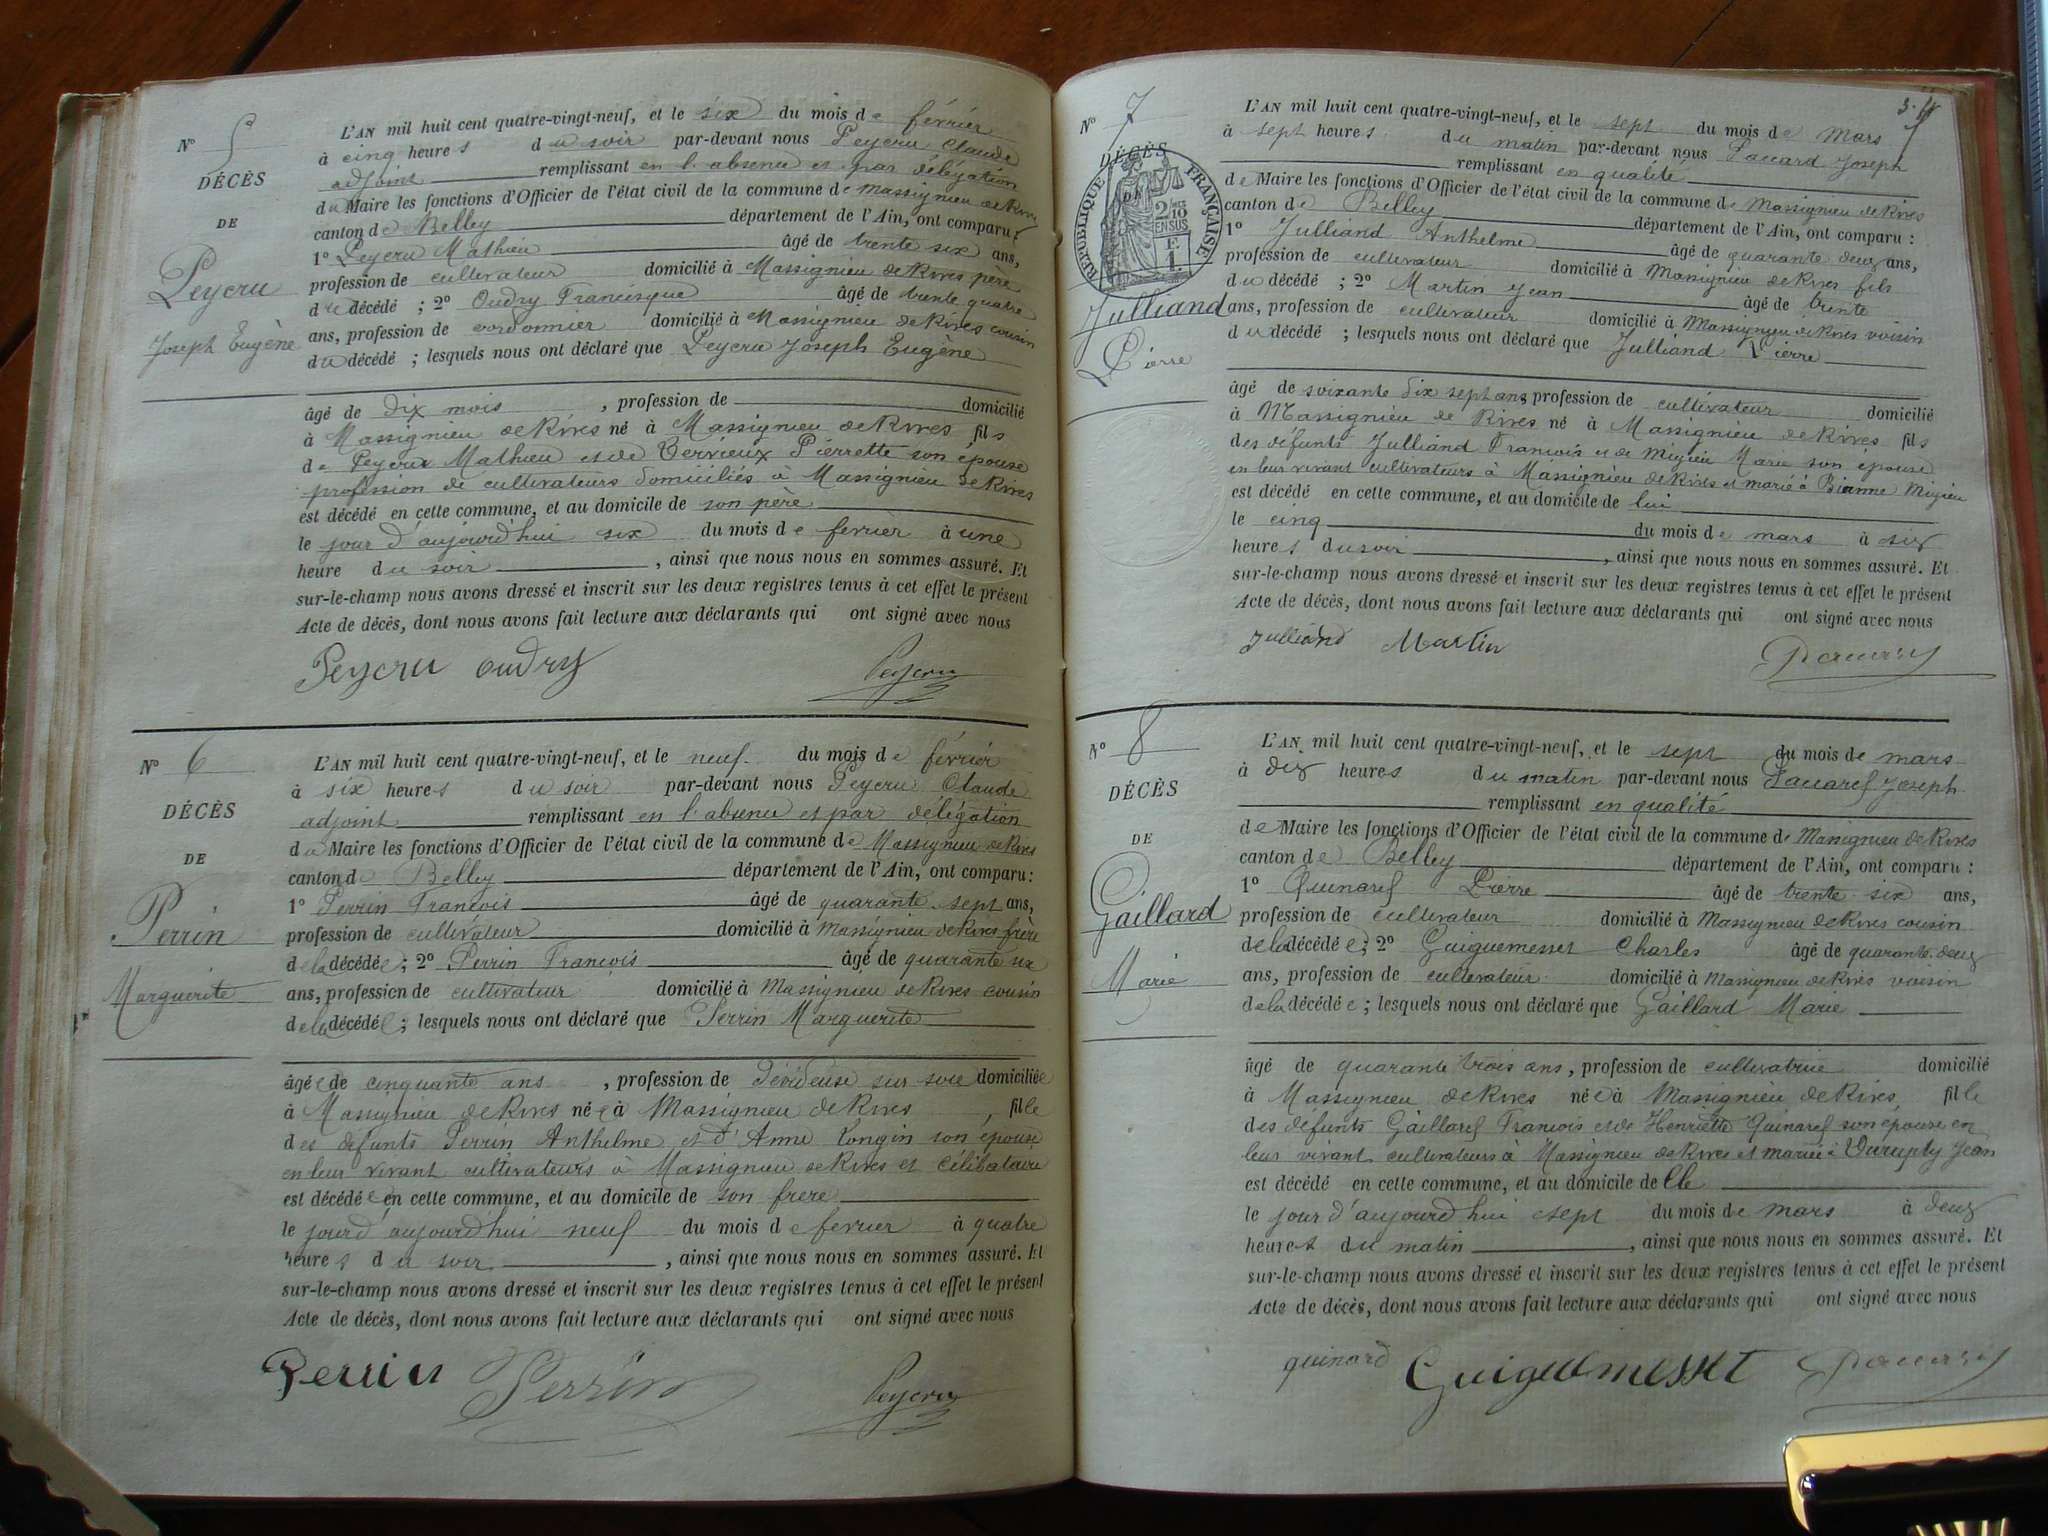 N° 5
DÉCÈS
DE
Peycru
Joseph Eugène
L'AN mil huit cent quatre-vingt-neuf, et le six du mois de février
à cinq heures du soir par-devant nous Peycru Claude
adjoint remplissant en l'absence et par délégation
du Maire les fonctions d'Officier de l'état civil de la commune de Massignieu de Rives
canton de Belley département de l'Ain, ont comparu :
1° Peycru Mathieu âgé de trente six ans,
profession de cultivateur domicilié à Massignieu de Rives père
du décédé ; 2° Oudry Francisque âgé de trente quatre
ans, profession de cordonnier domicilié à Massignieu de Rives cousin
du décédé ; lesquels nous ont déclaré que Peycru Joseph Eugène
âgé de dix mois , profession de domicilié
à Massignieu de Rives né à Massignieu de Rives fils
de Peycru Mathieu et de Vervieux Pierrette son épouse
profession de cultivateurs domiciliés à Massignieu de Rives
est décédé en cette commune, et au domicile de son père
le jour d'aujourd'hui six du mois de février à une
heure du soir , ainsi que nous nous en sommes assuré. Et
sur-le-champ nous avons dressé et inscrit sur les deux registres tenus à cet effet le présent
Acte de décès, dont nous avons fait lecture aux déclarants qui ont signé avec nous
Peycru oudry Peycru
N° 6
DÉCÈS
DE
Perrin
Marguerite
L'AN mil huit cent quatre-vingt-neuf, et le neuf du mois de février
à six heures du soir par-devant nous Peycru Claude
adjoint remplissant en l'absence et par délégation
du Maire les fonctions d'Officier de l'état civil de la commune de Massignieu de Rives
canton de Belley département de l'Ain, ont comparu :
1° Perrin François âgé de quarante sept ans,
profession de cultivateur domicilié à Massignieu de Rives frère
de la décédée ; 2° Perrin François âgé de quarante six
ans, profession de cultivateur domicilié à Massignieu de Rives cousin
de la décédée ; lesquels nous ont déclaré que Perrin Marguerite
âgée de cinquante ans , profession de Dévideuse sur soie domiciliée
à Massignieu de Rives née à Massignieu de Rives , fille
des défunts Perrin Anthelme et d'Anne Longin son épouse
en leur vivant cultivateurs à Massignieu de Rives et célibataire
est décédée en cette commune, et au domicile de son frère
le jour d'aujourd'hui neuf du mois de fevrier à quatre
heures du soir , ainsi que nous nous en sommes assuré. Et
sur-le-champ nous avons dressé et inscrit sur les deux registres tenus à cet effet le présent
Acte de décès, dont nous avons fait lecture aux déclarants qui ont signé avec nous
Perrin Perrin Peycru
N° 7
DÉCÈS
DE
RÉPUBLIQUE FRANÇAISE
2/10 EN SUS
F 1
Julliand
Pierre
L'AN mil huit cent quatre-vingt-neuf, et le sept du mois de Mars
à sept heures du matin par-devant nous Paccard Joseph
remplissant en qualité
de Maire les fonctions d'Officier de l'état civil de la commune de Massignieu de Rives
canton de Belley département de l'Ain, ont comparu :
1° Julliand Anthelme âgé de quarante deux ans,
profession de cultivateur domicilié à Massignieu de Rives fils
du décédé ; 2° Martin Jean âgé de trente
ans, profession de cultivateur domicilié à Massignieu de Rives voisin
du décédé ; lesquels nous ont déclaré que Julliand Pierre
âgé de soixante dix sept ans, profession de cultivateur domicilié
à Massignieu de Rives né à Massignieu de Rives fils
des défunts Julliand François et de Migieu Marie son épouse
en leur vivant cultivateurs à Massignieu de Rives et marié à Migieu
est décédé en cette commune, et au domicile de lui
le cinq du mois de mars à six
heures du soir , ainsi que nous nous en sommes assuré. Et
sur-le-champ nous avons dressé et inscrit sur les deux registres tenus à cet effet le présent
Acte de décès, dont nous avons fait lecture aux déclarants qui ont signé avec nous
Julliand Martin
N° 8
DÉCÈS
DE
Gaillard
Marie
L'AN mil huit cent quatre-vingt-neuf, et le sept du mois de mars
à dix heures du matin par-devant nous Paccard Joseph
remplissant en qualité
de Maire les fonctions d'Officier de l'état civil de la commune de Massignieu de Rives
canton de Belley département de l'Ain, ont comparu :
1° Quinard Pierre âgé de trente six ans,
profession de cultivateur domicilié à Massignieu de Rives cousin
de la décédée ; 2° Guiguemesset Charles âgé de quarante deux
ans, profession de cultivateur domicilié à Massignieu de Rives voisin
de la décédée ; lesquels nous ont déclaré que Gaillard Marie
âgé de quarante trois ans, profession de cultivatrice domicilié
à Massignieu de Rives née à Massignieu de Rives, fille
des défunts Gaillard François et de Henriette Quinard son épouse en
leur vivant cultivateurs à Massignieu de Rives et mariée à Jean
est décédé en cette commune, et au domicile de lle
le jour d'aujourd'hui sept du mois de mars à deux
heures du matin , ainsi que nous nous en sommes assuré. Et
sur-le-champ nous avons dressé et inscrit sur les deux registres tenus à cet effet le présent
Acte de décès, dont nous avons fait lecture aux déclarants qui ont signé avec nous
quinard Guiguemesset